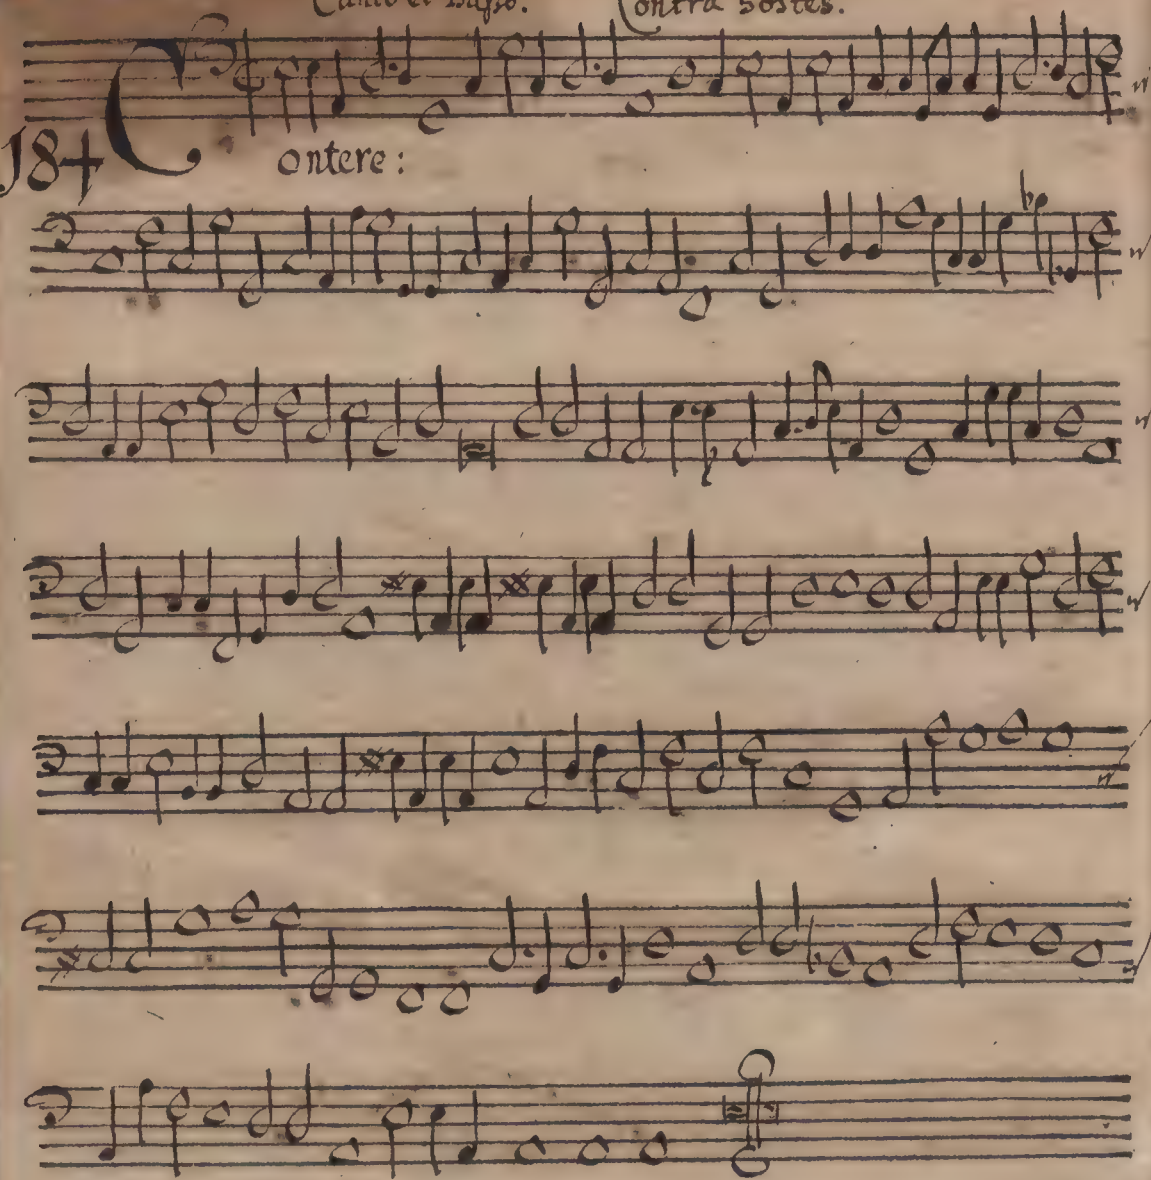 Canto et Basso. Contra hostes.
184
Contere: